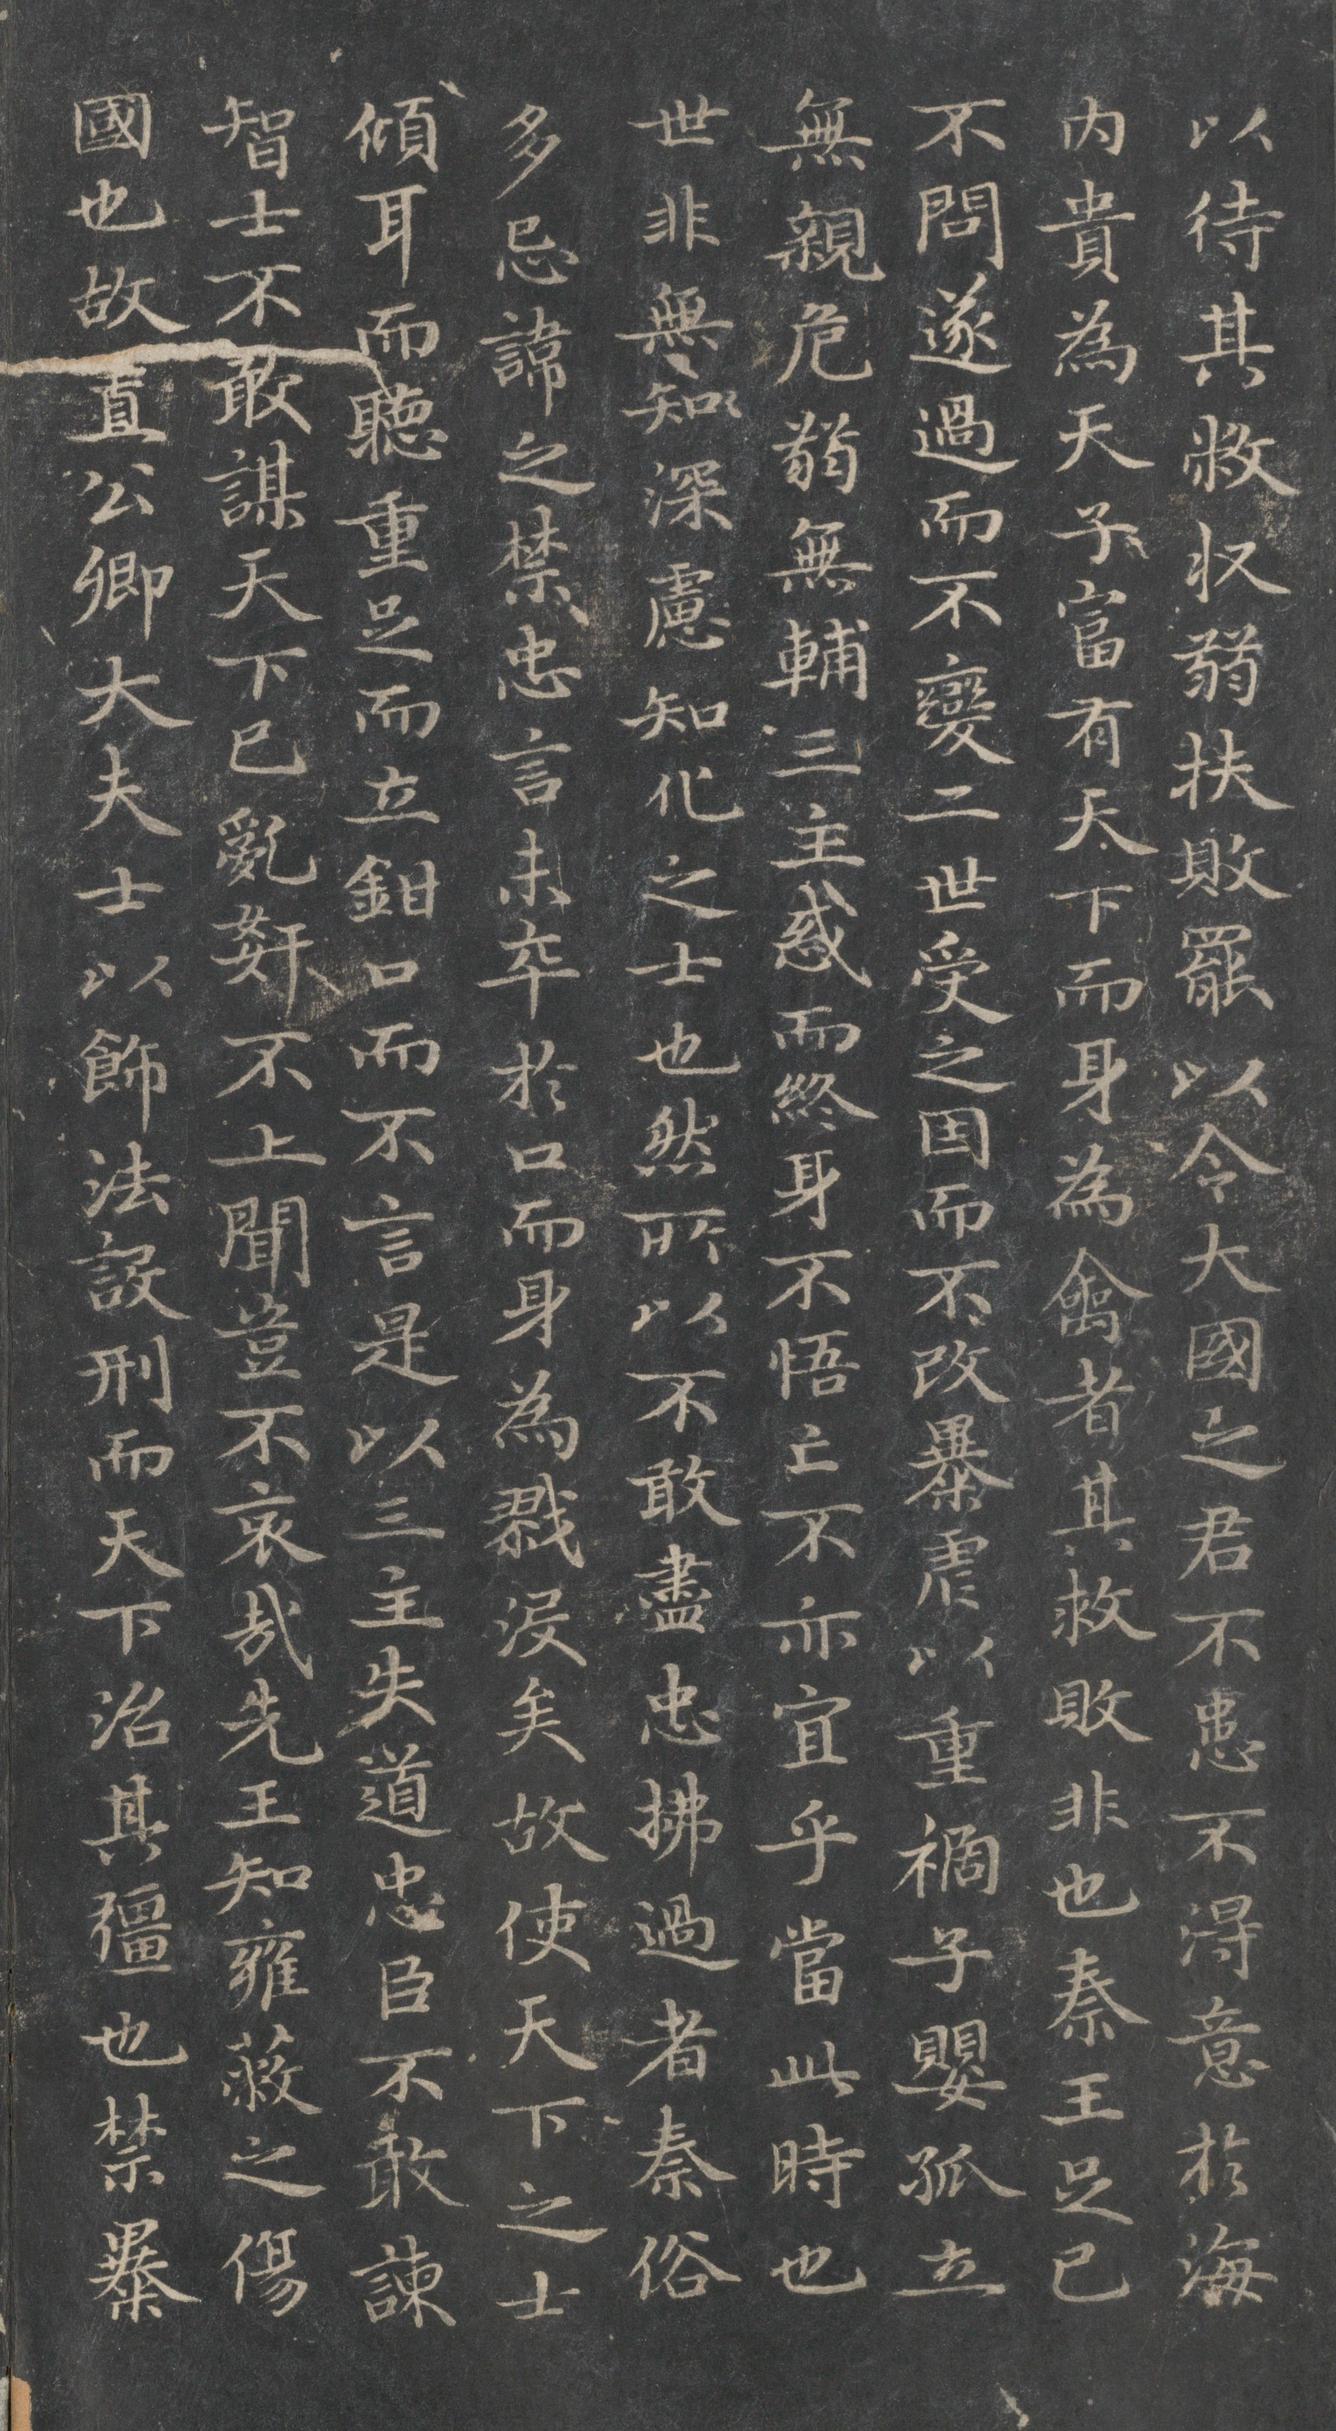 以待其敝収弱扶敗罷以令大國之君不患不得意於海
内貴為天子富有天下而身為禽者其救敗非也秦王足已
不問遂過而不變二世受之因而不改暴虐以重禍子嬰孤立
無親危弱無輔三主惑而終身不悟亡不亦宜乎當此時也
世非無知深慮知化之士也然所以不敢盡忠拂過者秦俗
多忌諱之禁忠言未卒於口而身為戮没矣故使天下之士
傾耳而聽重足而立鉗口而不言是以三主失道忠臣不敢諫
智士不敢謀天下已亂姧不上聞豈不哀哉先王知雍蔽之傷
國也故置公卿大夫士以飾法設刑而天下治其彊也禁暴